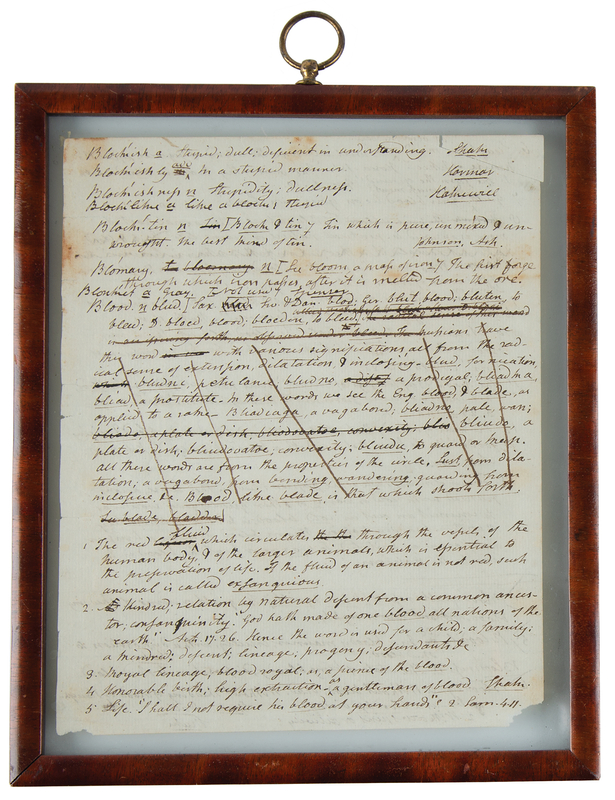 Block'ish a. stupid; dull; deficient in understanding. Shak
Block'ishly adv. In a stupid manner. Harmar
Block'ishness n Stupidity. dullness. Hakewill
Block'like a Like a block; stupid
Block'-tin n tin [Block & tin] Tin which is pure, unmixed & un-
wrought. The best kind of tin. Johnson, Ash.
Blo'mary, n [See bloom a mass of iron] The first forge
through which iron passes, after it is melted from the ore.
a Gray.
Blood. n blud. [Sax. Sw. & Dan. blod; Ger. blut, blood; bluten, to
bleed; D. bloed, blood; bloeden, to bleed;
The Russians have
this word with various significations, all from the rad-
ical sense of extension, dilatation & inclosing - blud, fornication,
bludnie, petulance, bludno, a prodigal;
bliad, a prostitute. In these words we see the Eng. blood & blade, as
applied to a rake- a vagabond, pale, wan;
plate or dish; convexity; bliudo, a
plate or dish; convexity; to guard or keep.
all these words are from the properties of the circle, Lust from dila-
tation; a vagabond, from bending, wandering, guarding from
inclosure, &c. Blood like blade, is that which shoots forth.
See blade, bladder]
1. The red fluid which circulates through the vessels of the
human body, & of the larger animals, which is essential to
the preservation of life. If the fluid of an animal is not red, such
animal is called exsanguious
2. Kindred; relation by natural descent from a common ances-
tor; consanguinity. "God hath made of one blood all nations of the
earth". Acts. 17.26. Hence the word is used for a child; a family;
a kindred; descent; lineage; progeny; descendants &c
3. Royal lineage; blood royal; as, a prince of the blood.
4 Honorable birth; high extraction - as a gentleman of blood Shak.
5. Life. "Shall I not require his blood at your hands"? 2. Sam. 4.11.